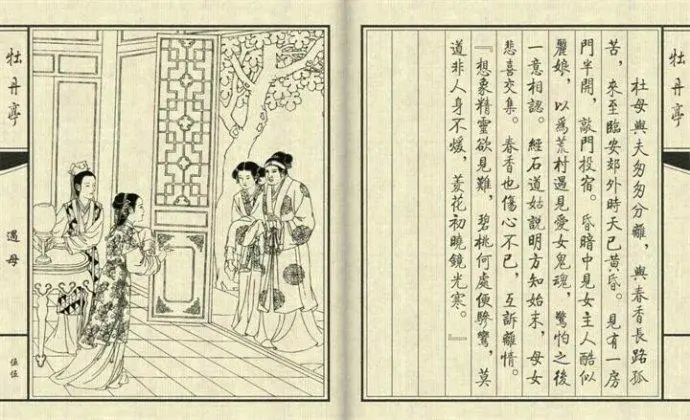 牡丹亭
杜母與夫匆匆分離，與春香長路孤
苦，來至臨安郊外時天已黃昏。見有一房
門半開，敲門投宿。昏暗中見女主人酷似
麗娘，以爲荒村遇見愛女鬼魂，驚怕之後
一意相認。經石道姑說明方知始末，母女
悲喜交集。春香也傷心不已，互訴離情。
『想象精靈欲見難，碧桃何處便驂鸞，莫
道非人身不煖，菱花初曉鏡光寒。』
牡丹亭
遇母